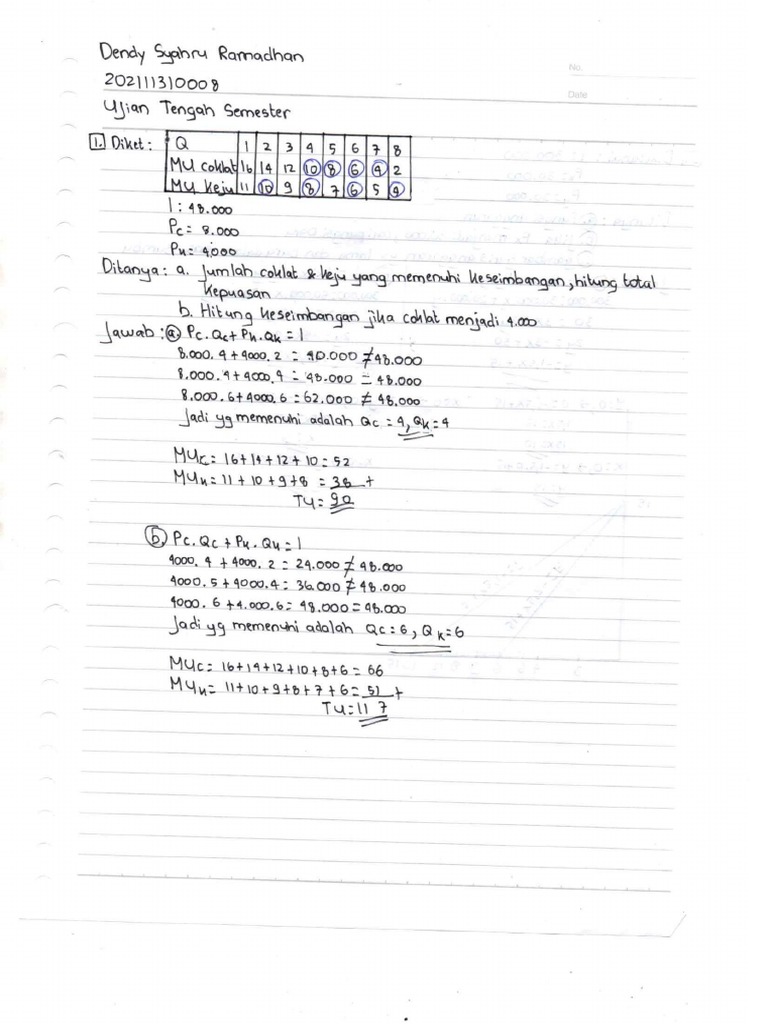 No.
Date
Dendy Syahru Ramadhan
202111310008
Ujian Tengah Semester
1. Diket : Q 1 2 3 4 5 6 7 8
MU coklat 16 14 12 10 8 6 4 2
MU keju 11 10 9 8 7 6 5 4
I : 48.000
Pc = 8.000
Pk = 4.000
Ditanya : a. Jumlah coklat & keju yang memenuhi keseimbangan, hitung total
kepuasan
b. Hitung keseimbangan jika coklat menjadi 4.000
Jawab : a Pc.Qc + Pk.Qk = I
8.000.4 + 4000.2 = 40.000 ≠ 48.000
8.000.4 + 4000.4 = 48.000 = 48.000
8.000.6 + 4000.6 = 62.000 ≠ 48.000
Jadi yg memenuhi adalah Qc = 4, Qk = 4
MUc = 16 + 14 + 12 + 10 = 52
MUk = 11 + 10 + 9 + 8 = 38 +
TU = 90
b. Pc.Qc + Pk.Qk = I
4000.4 + 4000.2 = 24.000 ≠ 48.000
4000.5 + 4000.4 = 36.000 ≠ 48.000
4000.6 + 4.000.6 = 48.000 = 48.000
Jadi yg memenuhi adalah Qc = 6, Qk = 6
MUc = 16 + 14 + 12 + 10 + 8 + 6 = 66
MUk = 11 + 10 + 9 + 8 + 7 + 6 = 51 +
TU = 117